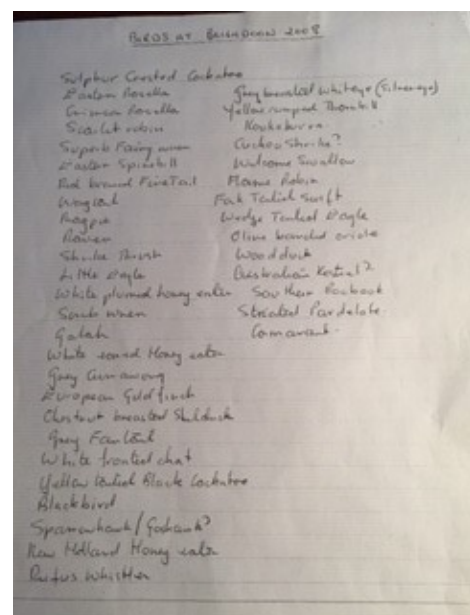 BIRDS AT BRIGADOON 2008
Sulphur Crested Cockatoo
Eastern Rosella
Crimson Rosella
Scarlet robin
Superb Fairy wren
Eastern Spinebill
Red browed FireTail
Wagtail
Magpie
Raven
Shrike Thrush
Little Eagle
White plumed honey eater
Scrub wren
Galah
White eared Honey eater
Grey Currawong
European Goldfinch
Chestnut breasted Shelduck
Grey Fantail
White fronted chat
Yellow tailed Black Cockatoo
Blackbird
Sparrowhawk/Goshawk?
New Holland Honey eater
Rufus Whistler
Grey breasted Whiteye (Silvereye)
Yellow rumped Thornbill
Kookaburra
Cuckoo Shrike?
Welcome Swallow
Flame Robin
Fork Tailed Swift
Wedge Tailed Eagle
Olive backed oriole
Wood duck
Australian Kestrel?
Southern Boobook
Striated Pardalote
Comorant